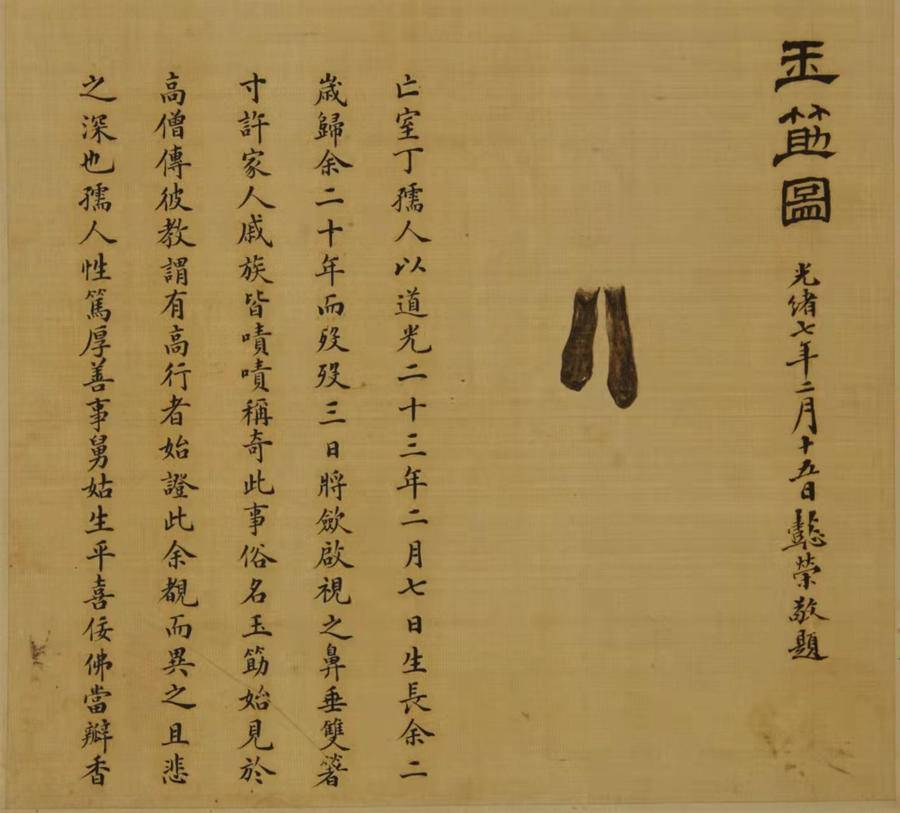 玉筯圖
光緒七年二月十五日懿榮敬題
亡室丁孺人以道光二十三年二月七日生長余二
歲歸余二十年而歿歿三日將斂啟視之鼻垂雙箸
寸許家人戚族皆嘖嘖稱奇此事俗名玉筯始見於
高僧傳彼教謂有高行者始證此余覩而異之且悲
之深也孺人性篤厚善事舅姑生平喜佞佛當瓣香